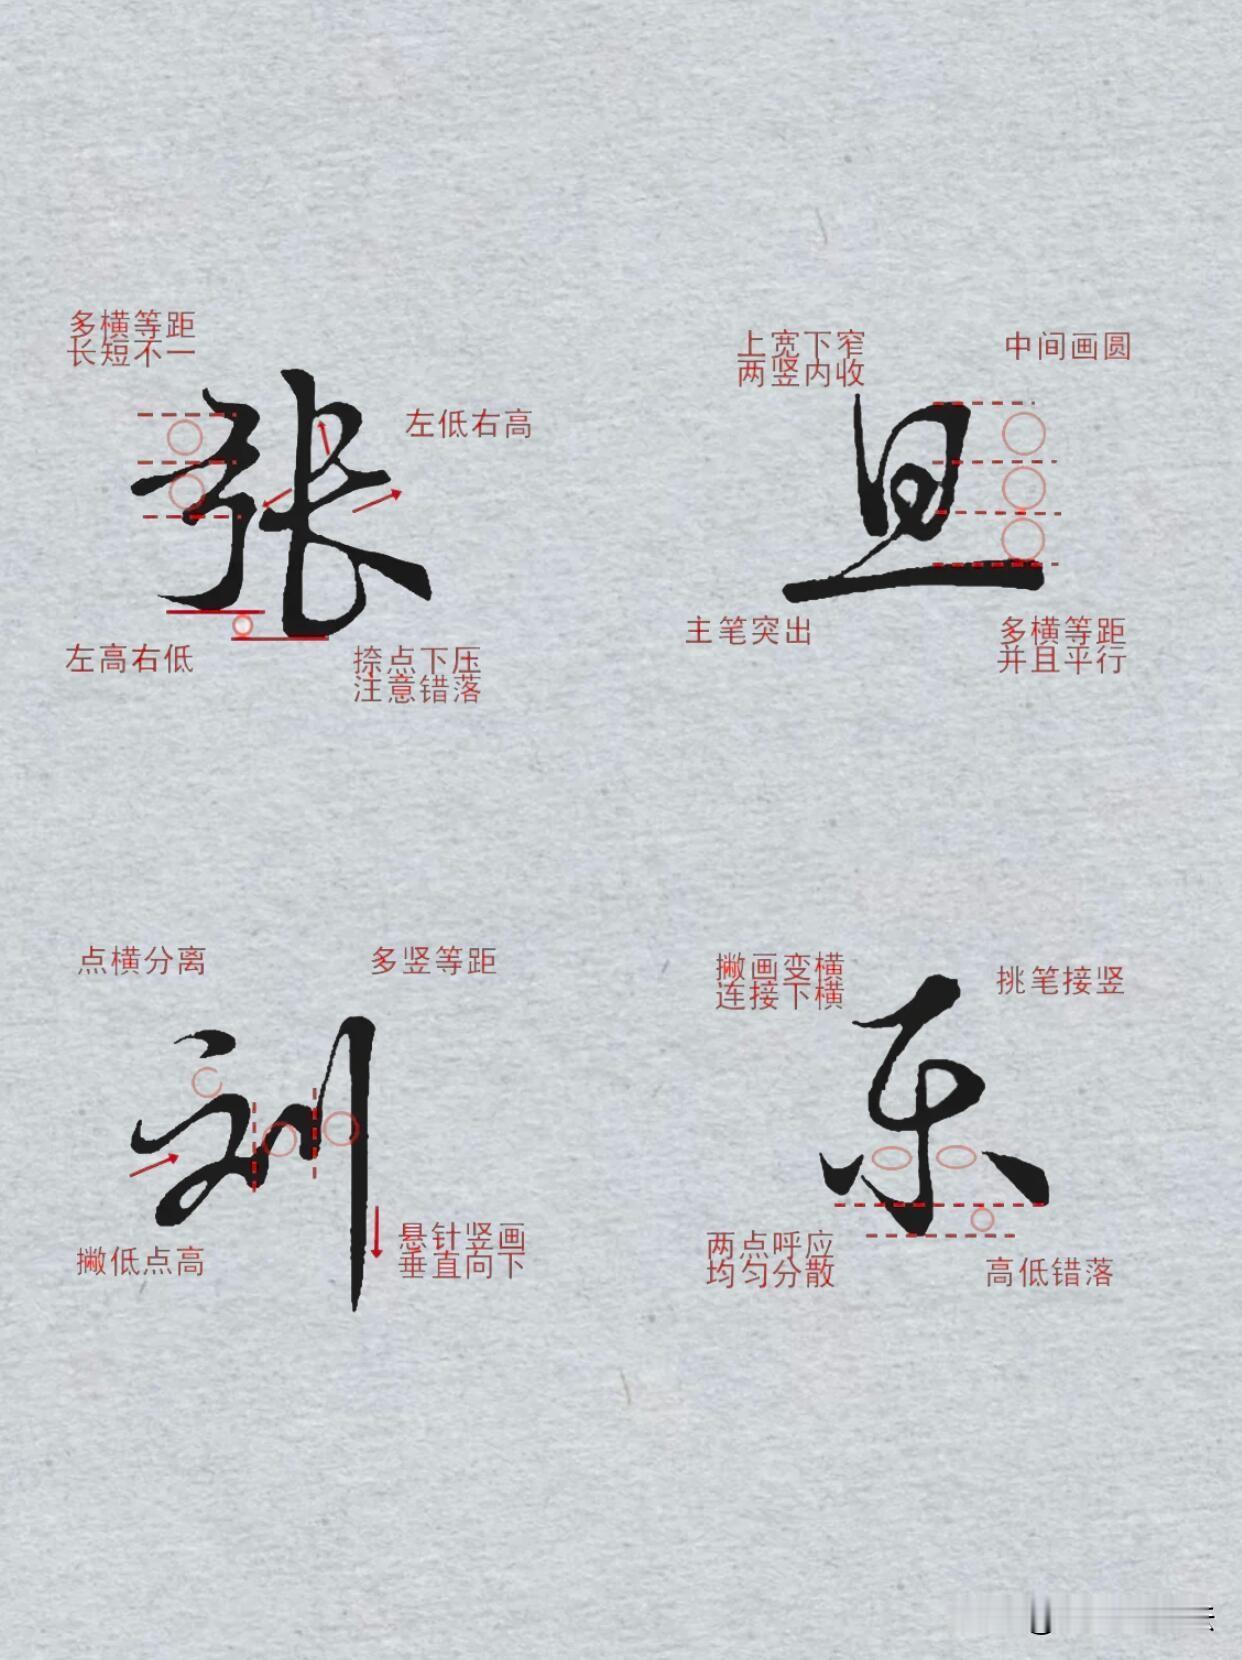 多横等距
长短不一
张
左低右高
左高右低
捺点下压
注意错落
上宽下窄
两竖内收
中间画圆
旦
主笔突出
多横等距
并且平行
点横分离
多竖等距
刘
撇低点高
悬针竖画
垂直向下
撇画变横
连接下横
挑笔接竖
东
两点呼应
均匀分散
高低错落